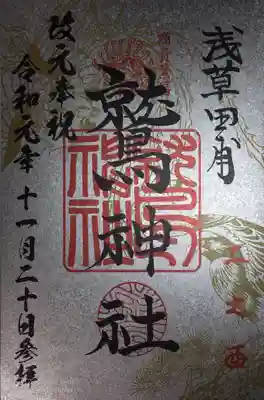 浅草田甫
鷲神社
改元奉祝
令和元年十一月二十日参拝
二の酉